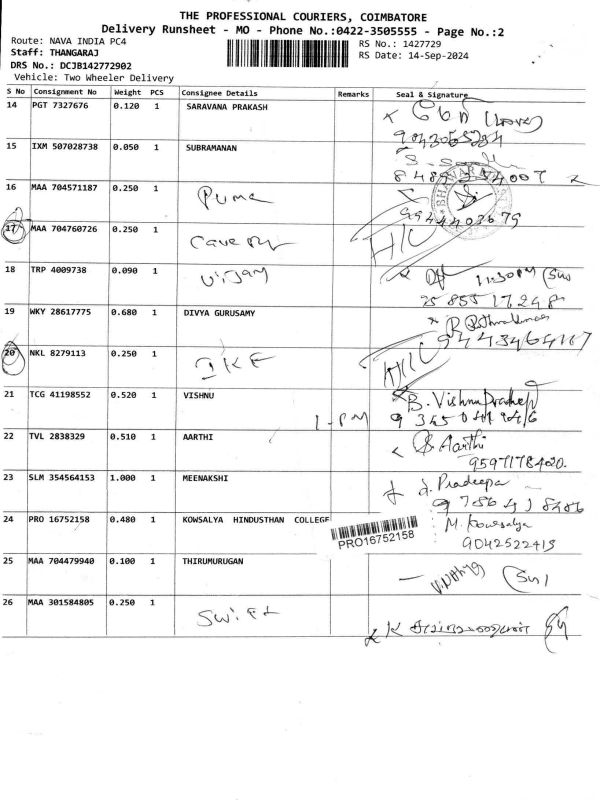 THE PROFESSIONAL COURIERS, COIMBATORE
Delivery Runsheet - MO - Phone No.:0422-3505555 - Page No.:2
Route: NAVA INDIA PC4
RS No.: 1427729
Staff: THANGARAJ
RS Date: 14-Sep-2024
DRS No.: DCJB142772902
Vehicle: Two Wheeler Delivery
S No Consignment No Weight PCS Consignee Details Remarks Seal & Signature
14 PGT 7327676 0.120 1 SARAVANA PRAKASH
15 IXM 507028738 0.050 1 SUBRAMANAN
16 MAA 704571187 0.250 1 Puma
9944403679
17 MAA 704760726 0.250 1
H/C
18 TRP 4009738 0.090 1 Vijay
19 WKY 28617775 0.680 1 DIVYA GURUSAMY
20 NKL 8279113 0.250 1
H/C
21 TCG 41198552 0.520 1 VISHNU
B. Vishnu Pradeep
1-PM
22 TVL 2838329 0.510 1 AARTHI
Aarthi
9597178420.
23 SLM 354564153 1.000 1 MEENAKSHI
J. Pradeepa
24 PRO 16752158 0.480 1 KOWSALYA HINDUSTHAN COLLEGE
PRO16752158
M. Kowsalya
9042522413
25 MAA 704479940 0.100 1 THIRUMURUGAN
26 MAA 301584805 0.250 1 Swift